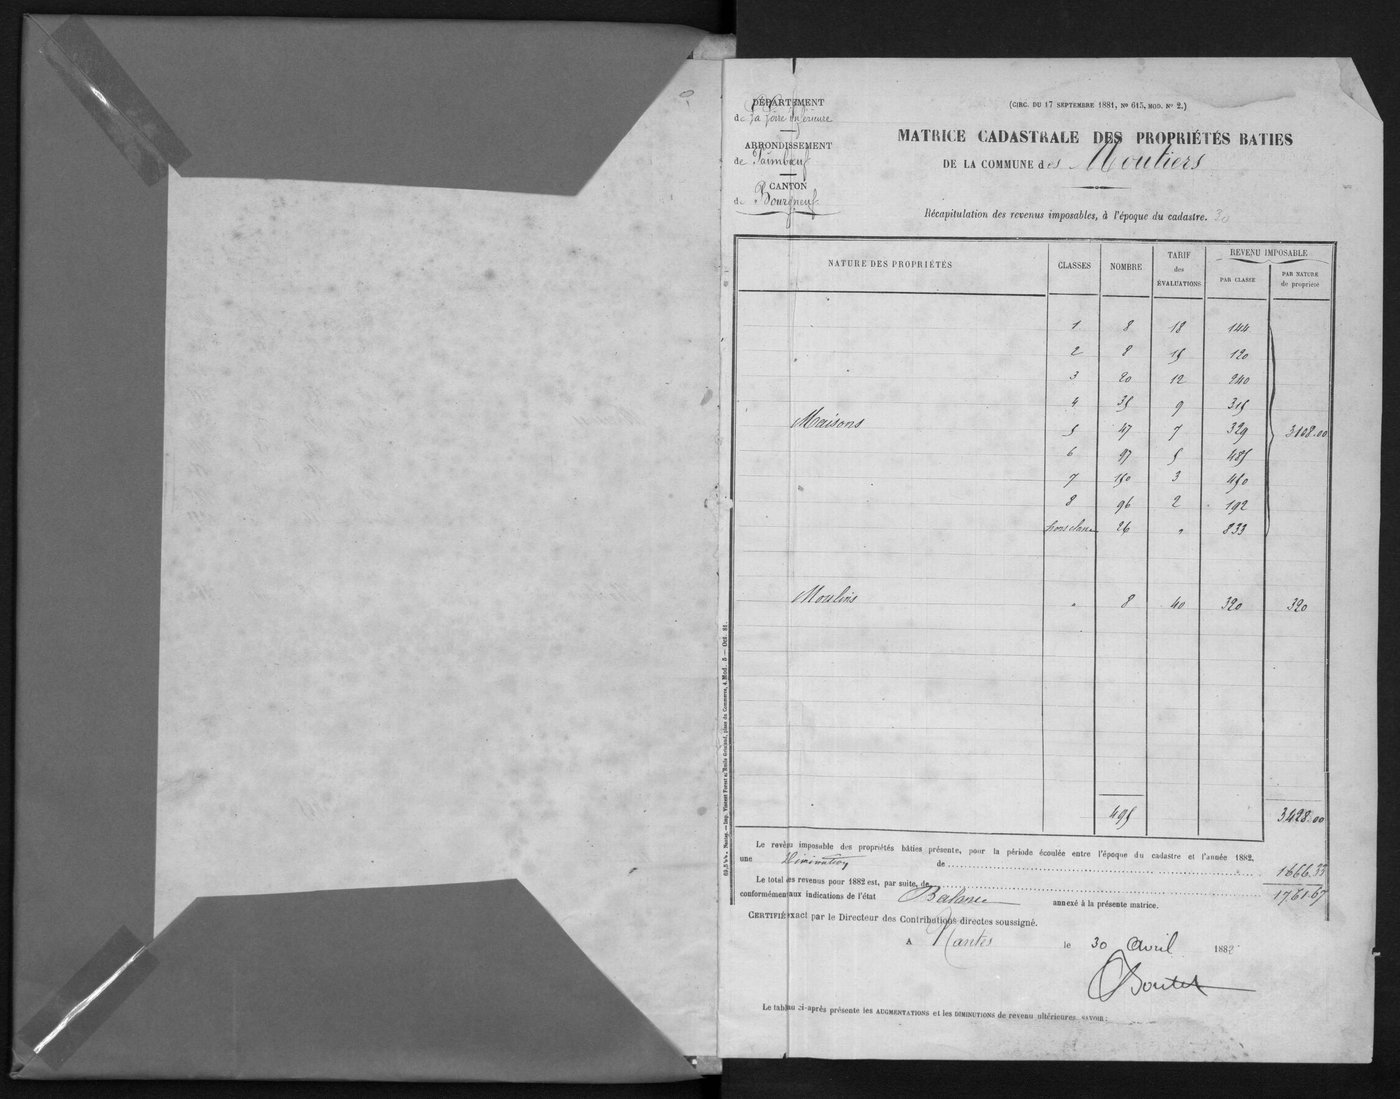 DÉPARTEMENT
de La Loire Inférieure
ARRONDISSEMENT
de Paimboeuf
CANTON
de Bourgneuf
(CIRC. DU 17 SEPTEMBRE 1881, No 615, MOD. No 2.)
MATRICE CADASTRALE DES PROPRIÉTÉS BATIES
DE LA COMMUNE des Moutiers
Récapitulation des revenus imposables, à l'époque du cadastre. 30
NATURE DES PROPRIÉTÉS CLASSES NOMBRE TARIF des ÉVALUATIONS REVENU IMPOSABLE
PAR CLASSE PAR NATURE de propriété
1 8 18 144
2 8 15 120
3 20 12 240
4 35 9 315
Maisons 5 47 7 329 3108.00
6 97 5 485
7 150 3 450
8 96 2 192
hors classe 26 " 833
Moulins " 8 40 320 320
495 3428.00
Le revenu imposable des propriétés bâties présente, pour la période écoulée entre l'époque du cadastre et l'année 1882,
une Diminution de 1666.33
Le total des revenus pour 1882 est, par suite, de 1761.67
conformément aux indications de l'état Balance annexé à la présente matrice.
CERTIFIÉ exact par le Directeur des Contributions directes soussigné.
A Nantes le 30 avril 1882
Boutet
Le tableau ci-après présente les AUGMENTATIONS et les DIMINUTIONS de revenu ultérieures, SAVOIR :